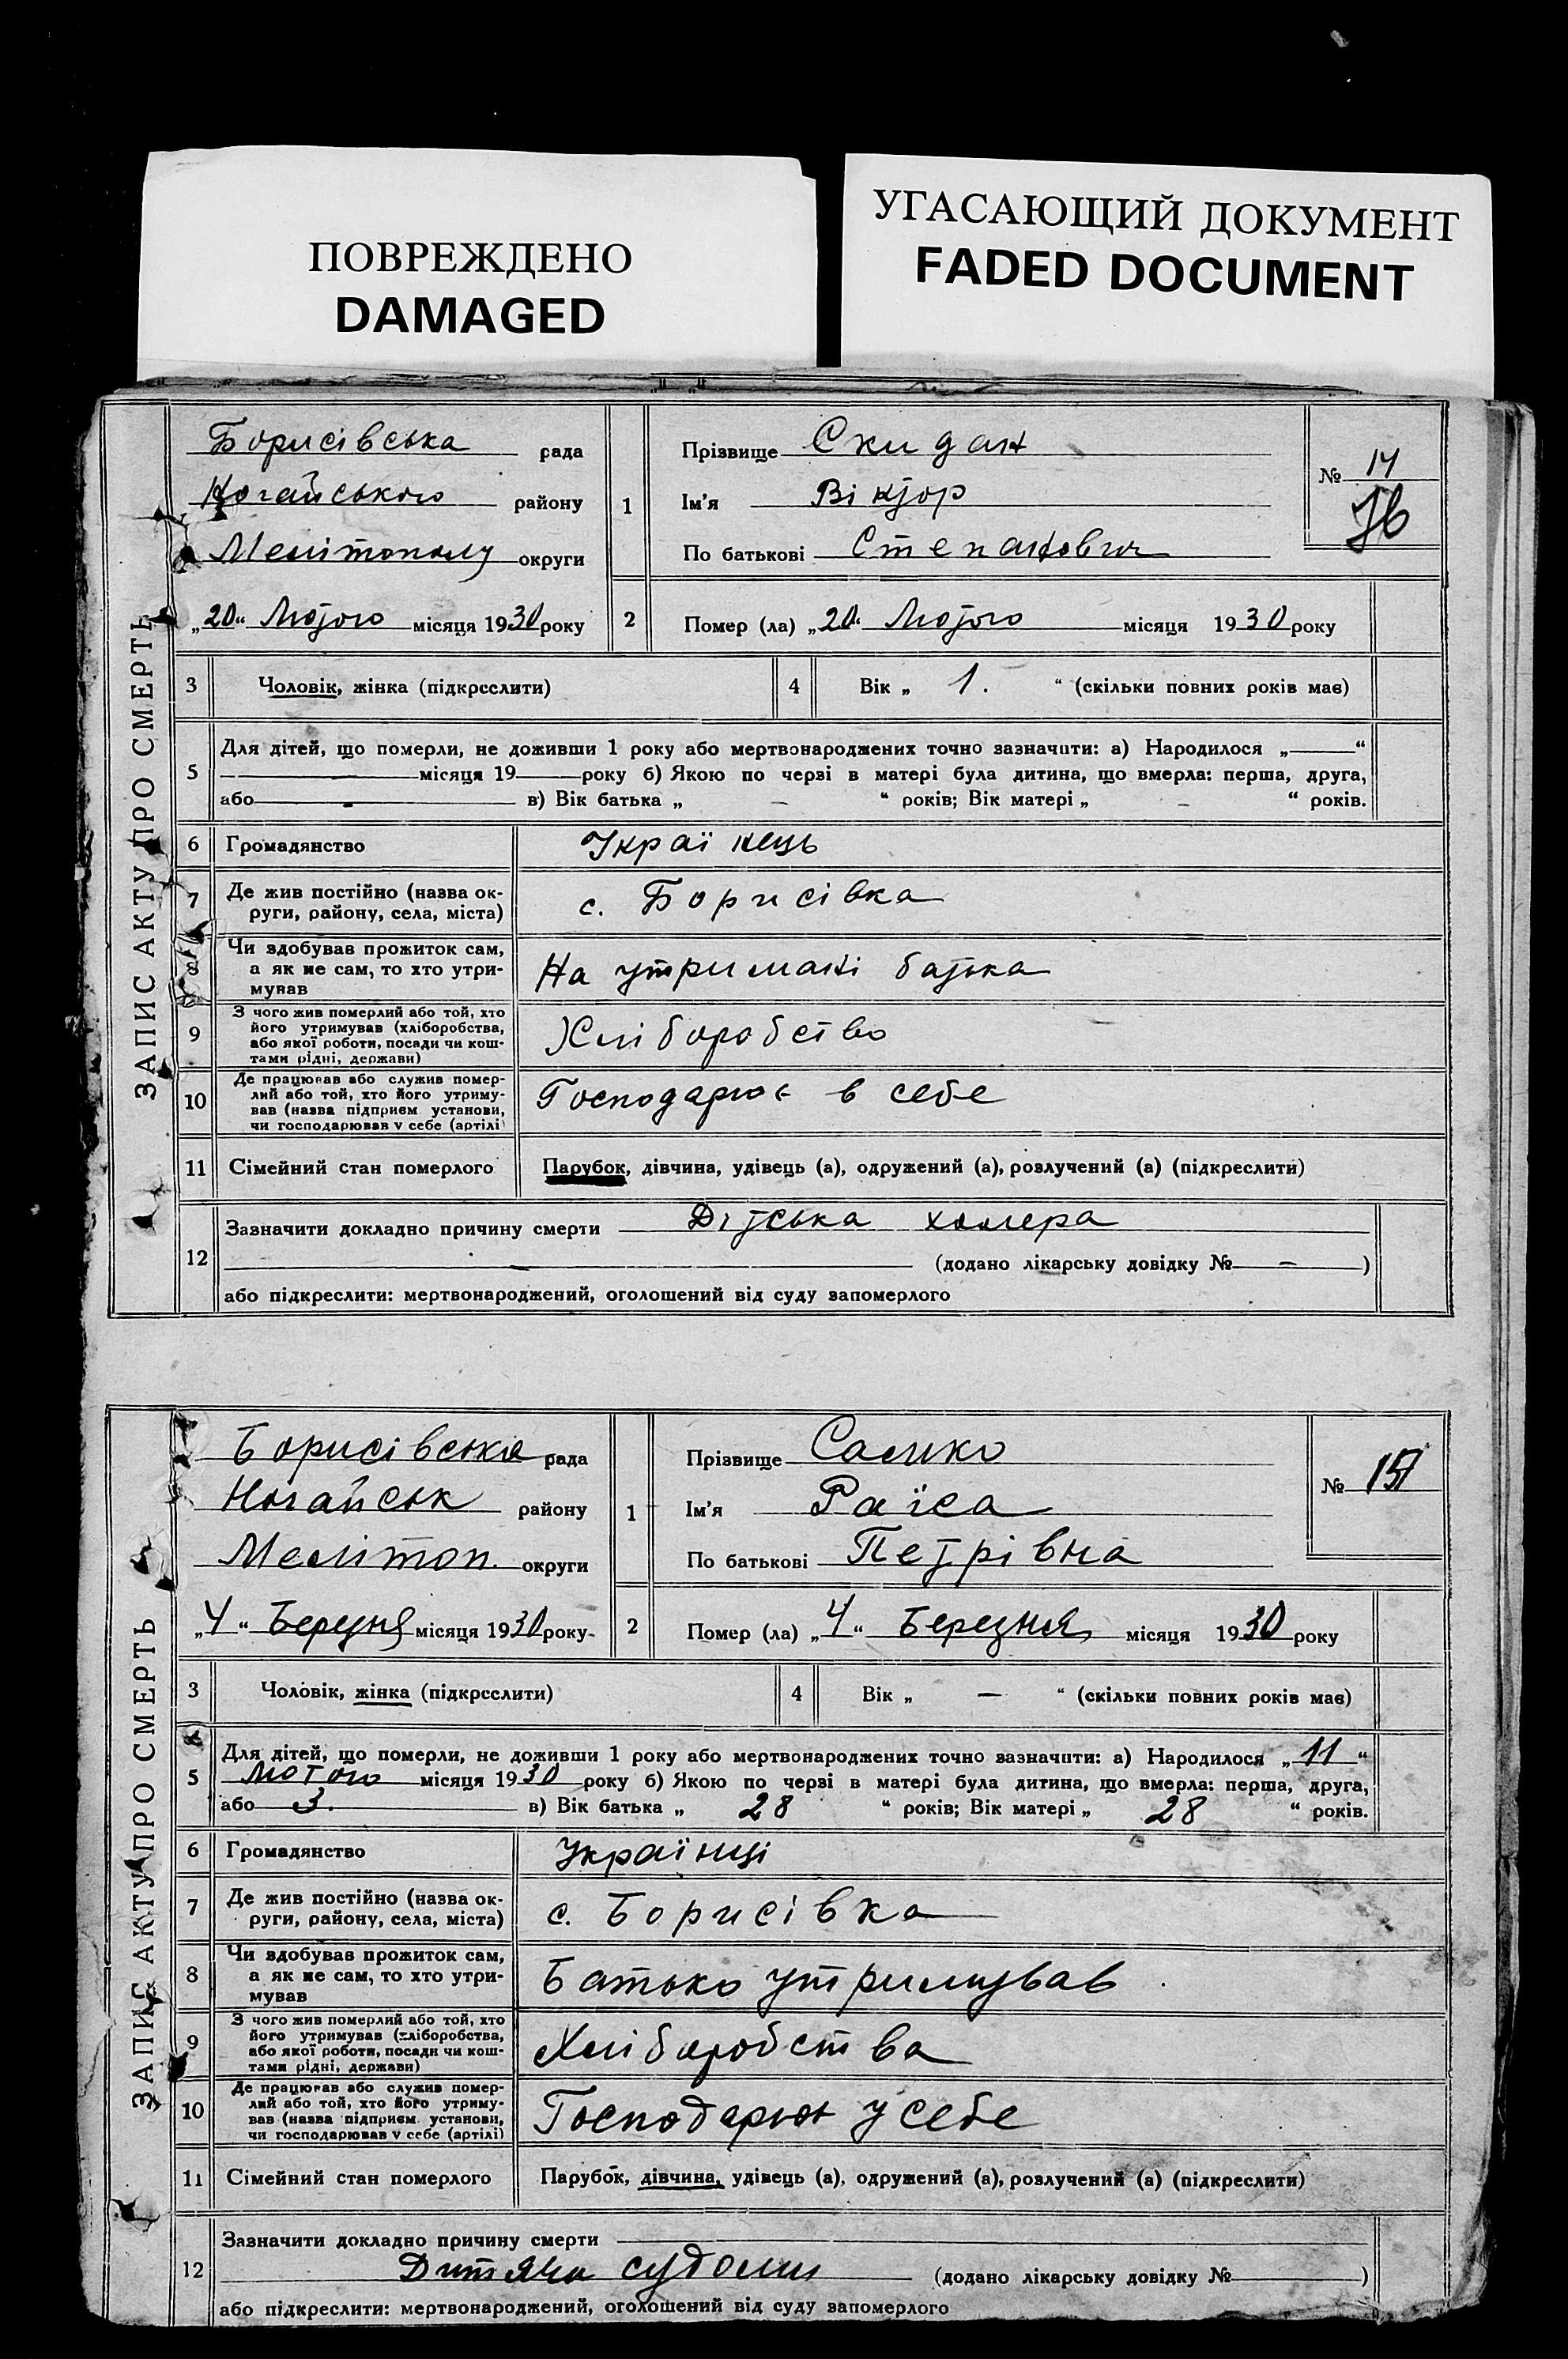 ПОВРЕЖДЕНО
DAMAGED
УГАСАЮЩИЙ ДОКУМЕНТ
FADED DOCUMENT
ЗАПИС АКТУ ПРО СМЕРТЬ
Борисівська рада
Ногайського району
Мелітополу округи
„20“ Лютого місяця 1930 року
1
Прізвище Скидан
Ім'я Віктор
По батькові Степанович
№ 14
2
Помер (ла) „20“ Лютого місяця 1930 року
3 Чоловік, жінка (підкреслити)
4 Вік „ 1. “ (скільки повних років має)
5 Для дітей, що померли, не доживши 1 року або мертвонароджених точно зазначити: а) Народилося „—“
— місяця 19— року б) Якою по черзі в матері була дитина, що вмерла: перша, друга,
або - в) Вік батька „ – “ років; Вік матері „ – “ років.
6 Громадянство Українець
7 Де жив постійно (назва ок-
руги, району, села, міста) с. Борисівка
8 Чи здобував прожиток сам,
а як не сам, то хто утри-
мував На утримані батька
9 З чого жив померлий або той, хто
його утримував (хліборобства,
або якої роботи, посади чи кош-
тами рідні, держави) Хліборобство
10 Де працював або служив помер-
лий або той, хто його утриму-
вав (назва підприєм установи,
чи господарював у себе (артілі) Господарює в себе
11 Сімейний стан померлого Парубок, дівчина, удівець (а), одружений (а), розлучений (а) (підкреслити)
12 Зазначити докладно причину смерти Дітська холера
(додано лікарську довідку № – )
або підкреслити: мертвонароджений, оголошений від суду запомерлого
ЗАПИС АКТУ ПРО СМЕРТЬ
Борисівська рада
Ногайськ району
Мелітоп. округи
„4“ Березня місяця 1930 року
1
Прізвище Саєнко
Ім'я Раїса
По батькові Петрівна
№ 15
2
Помер (ла) „4“ Березня місяця 1930 року
3 Чоловік, жінка (підкреслити)
4 Вік „ — “ (скільки повних років має)
5 Для дітей, що померли, не доживши 1 року або мертвонароджених точно зазначити: а) Народилося „11“
Лютого місяця 1930 року б) Якою по черзі в матері була дитина, що вмерла: перша, друга,
або 3. в) Вік батька „ 28 “ років; Вік матері „ 28 “ років.
6 Громадянство Українці
7 Де жив постійно (назва ок-
руги, району, села, міста) с. Борисівка
8 Чи здобував прожиток сам,
а як не сам, то хто утри-
мував Батько утримував
9 З чого жив померлий або той, хто
його утримував (хліборобства,
або якої роботи, посади чи кош-
тами рідні, держави) Хліборобства
10 Де працював або служив помер-
лий або той, хто його утриму-
вав (назва підприєм. установи,
чи господарював у себе (артілі) Господарює у себе
11 Сімейний стан померлого Парубок, дівчина, удівець (а), одружений (а), розлучений (а) (підкреслити)
12 Зазначити докладно причину смерти
Дитячи судоми (додано лікарську довідку № )
або підкреслити: мертвонароджений, оголошений від суду запомерлого